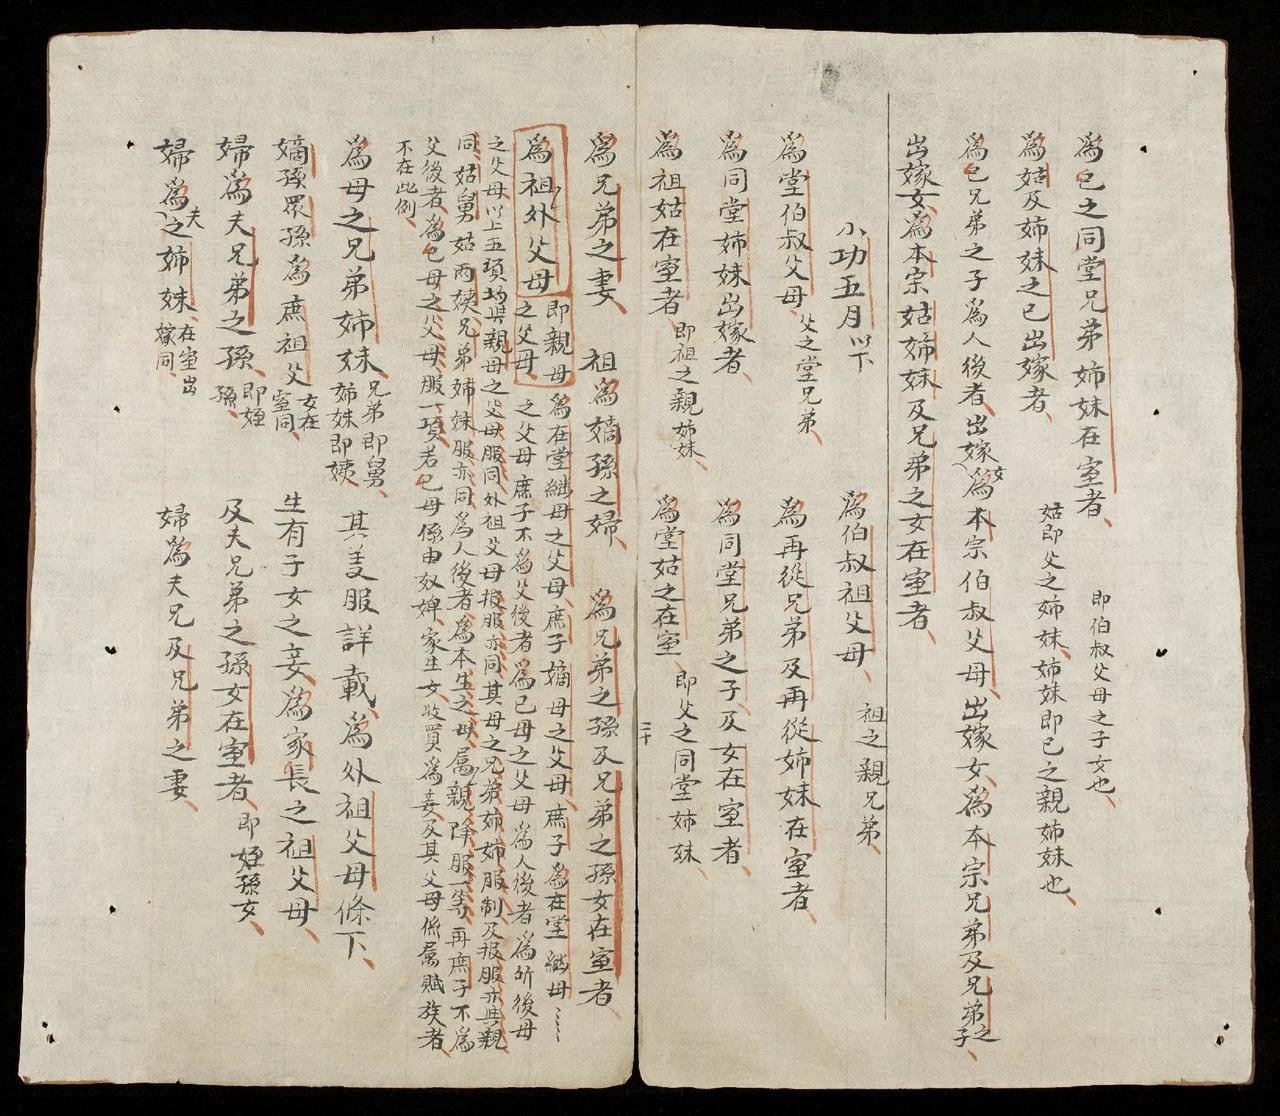 為己之同堂兄弟姉妹在室者、即伯叔父母之子女也、
為姑及姉妹之已出嫁者、姑即父之姉妹、姉妹即己之親姉妹也、
為己兄弟之子為人後者、出嫁女為本宗伯叔父母、出嫁女為本宗兄弟及兄弟之子、
出嫁女為本宗姑姉妹及兄弟之女在室者、
小功五月以下
為伯叔祖父母、祖之親兄弟、
為堂伯叔父母、父之堂兄弟、
為再從兄弟及再從姉妹在室者、
為同堂姉妹出嫁者、
為同堂兄弟之子及女在室者、
為祖姑在室者、即祖之親姉妹、
為堂姑之在室 即父之同堂姉妹、
二十
為兄弟之妻、 祖為嫡孫之婦、 為兄弟之孫及兄弟之孫女在室者、
為祖外父母 即親母之父母、
為在堂繼母之父母、庶子嫡母之父母、庶子為在堂繼母
之父母庶子不為父後者為己母之父母為人後者為所後母
之父母以上五項均與親母之父母服同外祖父母報服亦同其母之兄弟姉妹服制及报服亦與親
同、姑舅姑两姨兄弟姉妹服亦同為人後者為本生之母属親降服一等、再庶子不為
父後者、為己母之父母服一項若己母係由奴婢、家生女收買為妾及其父母係属賎族者、
不在此例、
為母之兄弟姉妹、兄弟即舅、姉妹即姨 其义服詳載為外祖父母條下、
嫡孫眾孫為庶祖父 女在室同、
生有子女之妾、為家長之祖父母、
婦為夫兄弟之孫、即姪孫、
及夫兄弟之孫女在室者、即姪孫女、
婦為夫之姉妹、在室出嫁同、
婦為夫兄及兄弟之妻、